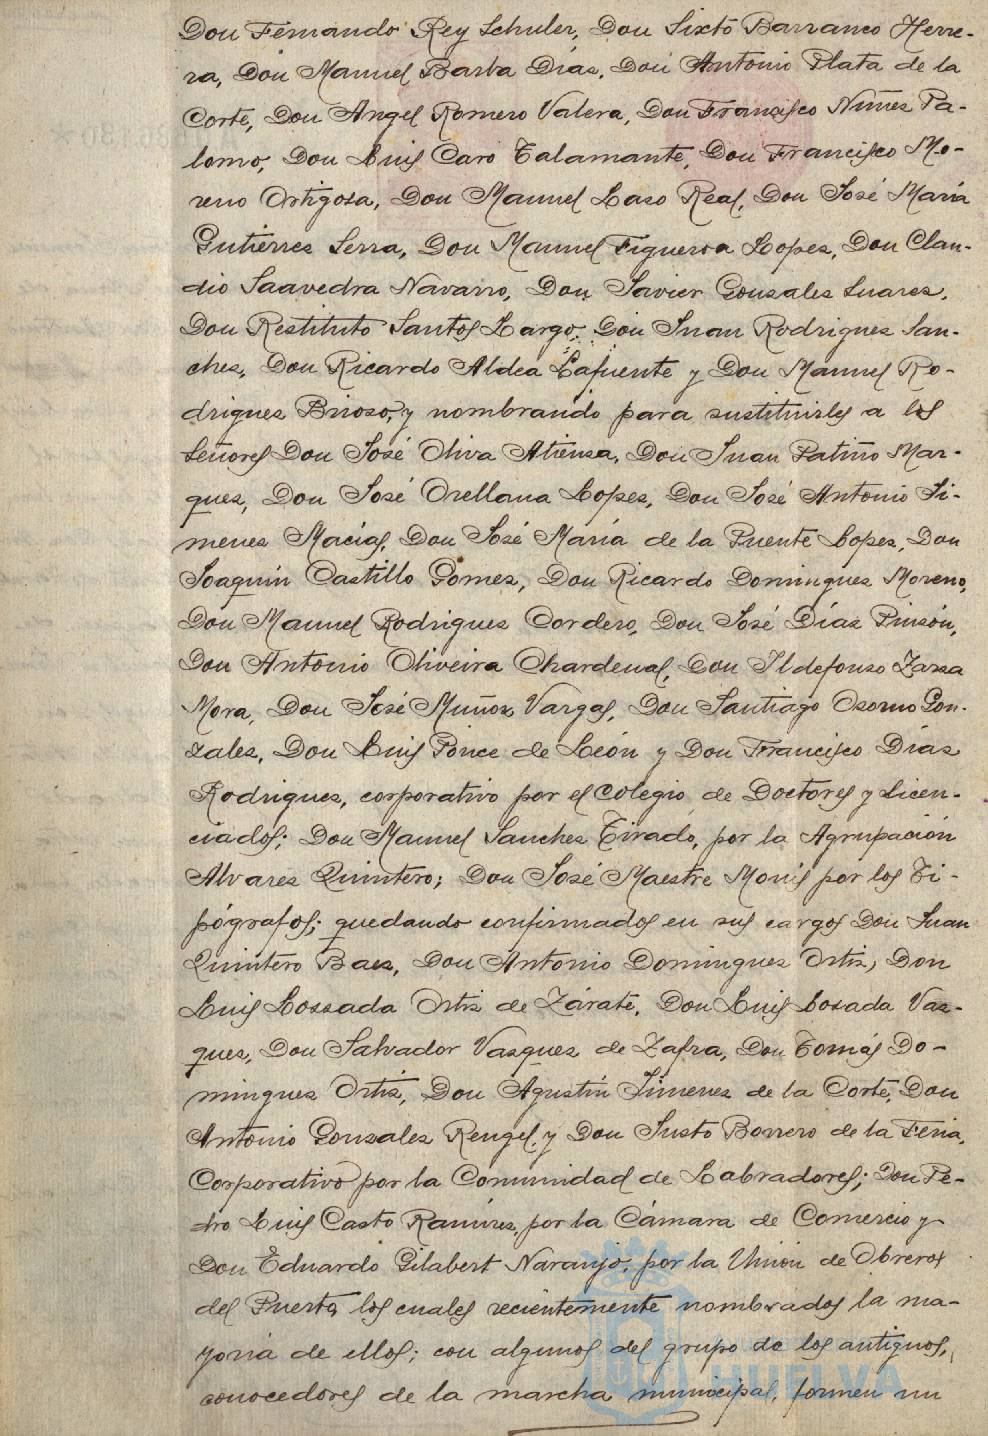 Don Fernando Rey Schuler, Don Sixto Barranco Herre-
ra, Don Manuel Barba Dias, Don Antonio Plata de la
Corte, Don Angel Romero Valera, Don Francisco Nuñes Pa-
lomo, Don Luis Caro Talamante, Don Francisco Mo-
reno Ortigosa, Don Manuel Laso Real, Don José María
Gutierres Serra, Don Manuel Figueroa Lopes, Don Clau-
dio Saavedra Navarro, Don Javier Gonsales Suares,
Don Restituto Santos Largo, Don Juan Rodrigues San-
ches, Don Ricardo Aldea Lafuente y Don Manuel Ro-
drigues Brioso, y nombrando para sustituirles a los
Señores Don José Oliva Atiensa, Don Juan Patiño Mar-
ques, Don José Orellana Lopes, Don José Antonio Ji-
menes Macías, Don José María de la Puente Lopes, Don
Joaquín Castillo Gomes, Don Ricardo Domingues Moreno,
Don Manuel Rodrigues Cordero, Don José Días Pinsón,
Don Antonio Oliveira Chardenal, Don Ildefonso Zarsa
Mora, Don José Muñoz Vargas, Don Santiago Osorno Gon-
zales, Don Luis Ponce de León y Don Francisco Días
Rodrigues, corporativo por el Colegio de Doctores y Licen-
ciados; Don Manuel Sanches Tirado, por la Agrupación
Alvares Quintero; Don José Maestre Monís por los Ti-
pógrafos; quedando confirmados en sus cargos Don Juan
Quintero Baes, Don Antonio Domingues Ortis, Don
Luis Lossada Ortis de Zárate, Don Luis Losada Vas-
ques, Don Salvador Vasques de Zafra, Don Tomás Do-
mingues Ortis, Don Agustín Jimenes de la Corte, Don
Antonio Gonsales Rengel y Don Justo Borrero de la Feria,
Corporativo por la Comunidad de Labradores; Don Pe-
dro Luis Casto Ramires, por la Cámara de Comercio y
Don Eduardo Gilabert Naranjo, por la Unión de Obreros
del Puerto, los cuales recientemente nombrados la ma-
yoria de ellos; con algunos del grupo de los antiguos,
conocedores de la marcha municipal, formen un
HUELVA